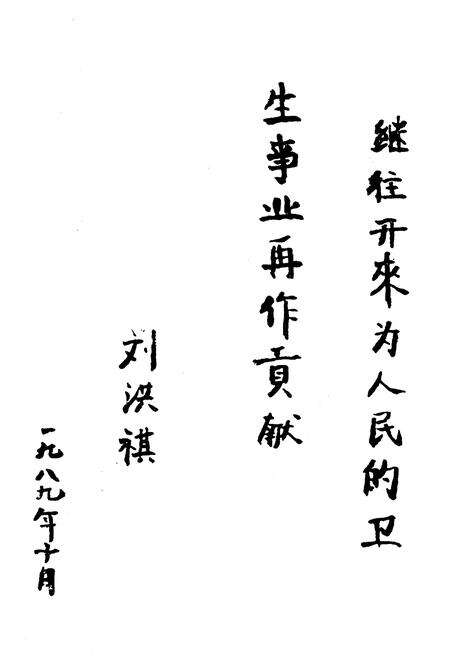 继往开來为人民的卫
生事业再作貢献
刘洪祺
一九八九年十月